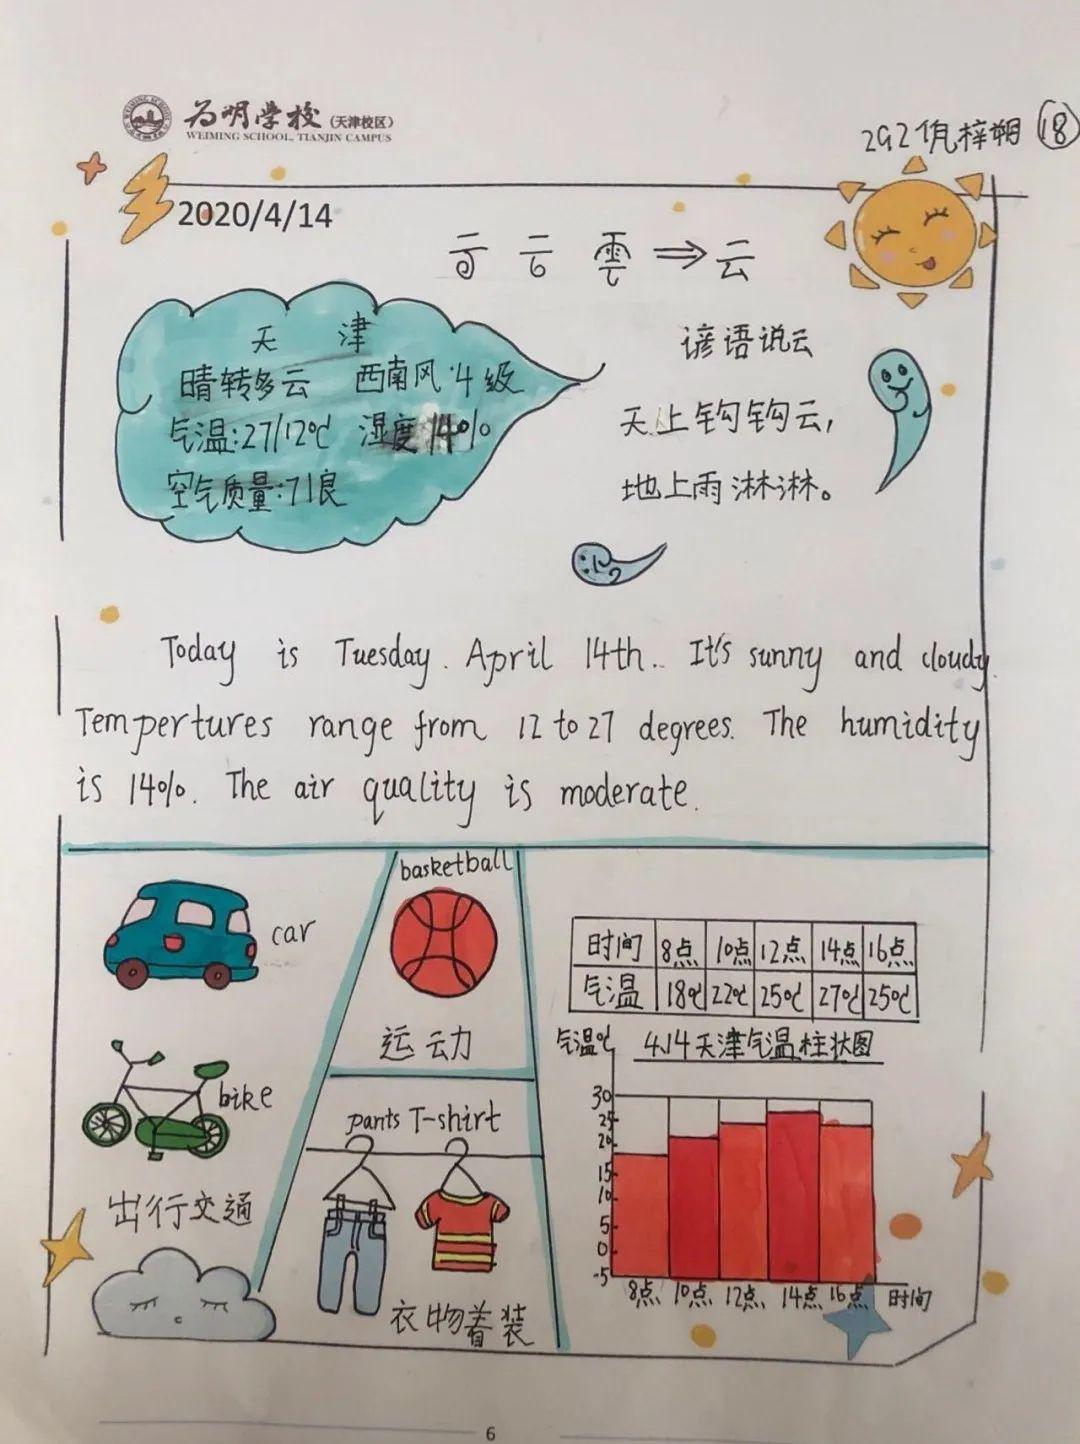 为明学校(天津校区)
WEIMING SCHOOL, TIANJIN CAMPUS
292 倪梓朔 18
2020/4/14
雲⇒云
天 津
晴转多云 西南风:4级
气温:27/12℃ 湿度14%
空气质量:71良
谚语说云
天上钩钩云,
地上雨淋淋。
Today is Tuesday. April 14th.. It's sunny and cloudy.
Tempertures range from 12 to 27 degrees. The humidity
is 14%. The air quality is moderate.
car
bike
出行交通
basketball
运动
pants T-shirt
衣物着装
时间 8点 10点 12点 14点 16点
气温 18℃ 22℃ 25℃ 27℃ 25℃
气温℃ 4.14天津气温柱状图
30
25
20
15
10
5
0
-5
8点 10点 12点 14点 16点 时间
6